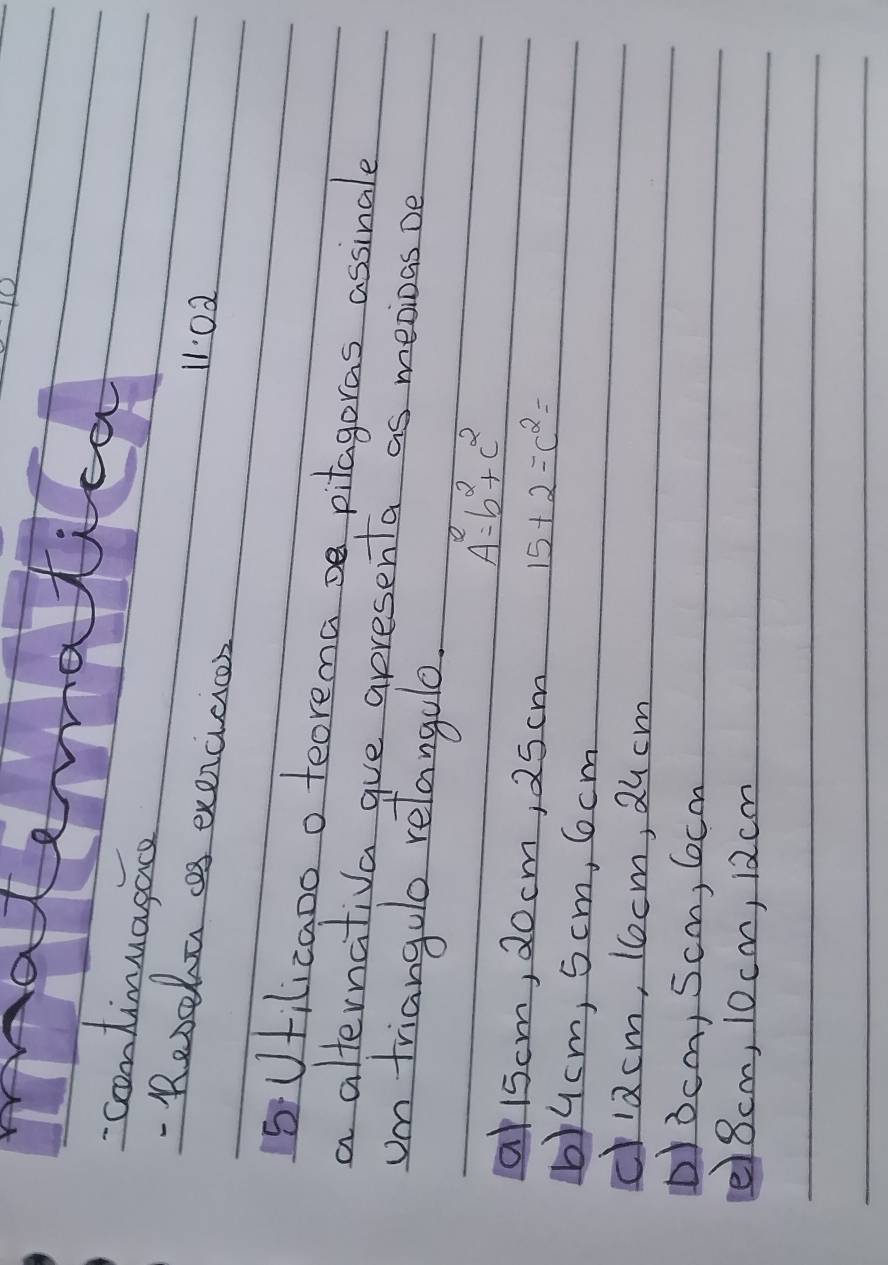 MATEMÁTICA
matematica
- continuação
- Resolva os exercicios 11.02
5. Utilizano o teorema de pitagoras assinale
a alternativa que apresenta as medidas De
um triangulo retangulo.
A² = b² + c²
a) 15cm, 20cm, 25cm 15 + 2 = c² =
b) 4cm, 5cm, 6cm
c) 12cm, 16cm, 24cm
D) 3cm, 5cm, 6cm
e) 8cm, 10cm, 12cm